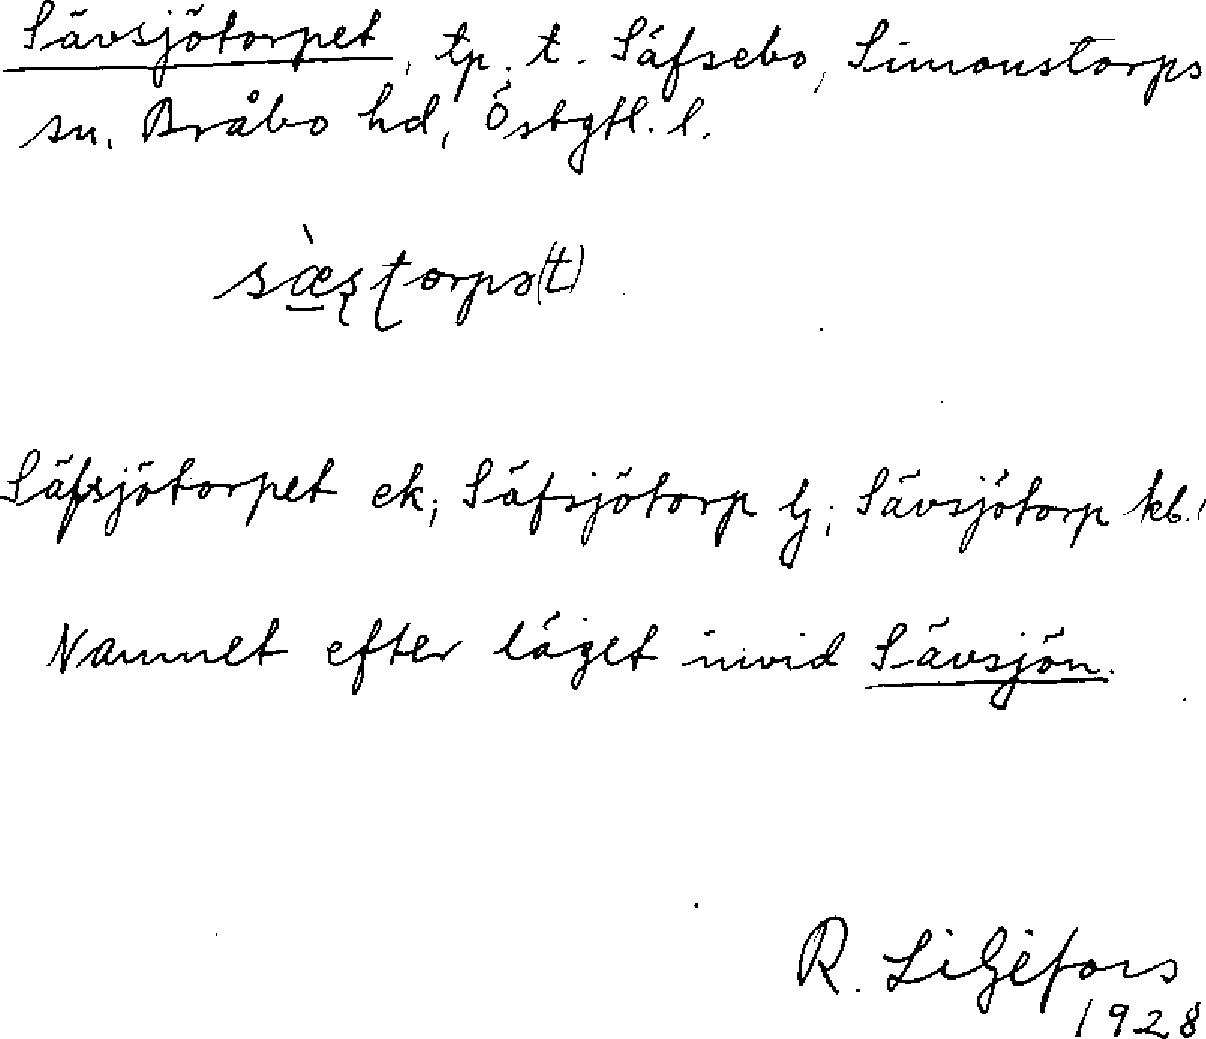 Sävsjötorpet, tp. t. Säfsebo, Simonstorps
sn. Bråbo hd, Östgtl. l.
sæ̀ştorpə(t)
Säfsjötorpet ek; Säfsjötorp lj; Sävsjötorp kb.;
Namnet efter läget invid Sävsjön.
R. Liljefors
1928